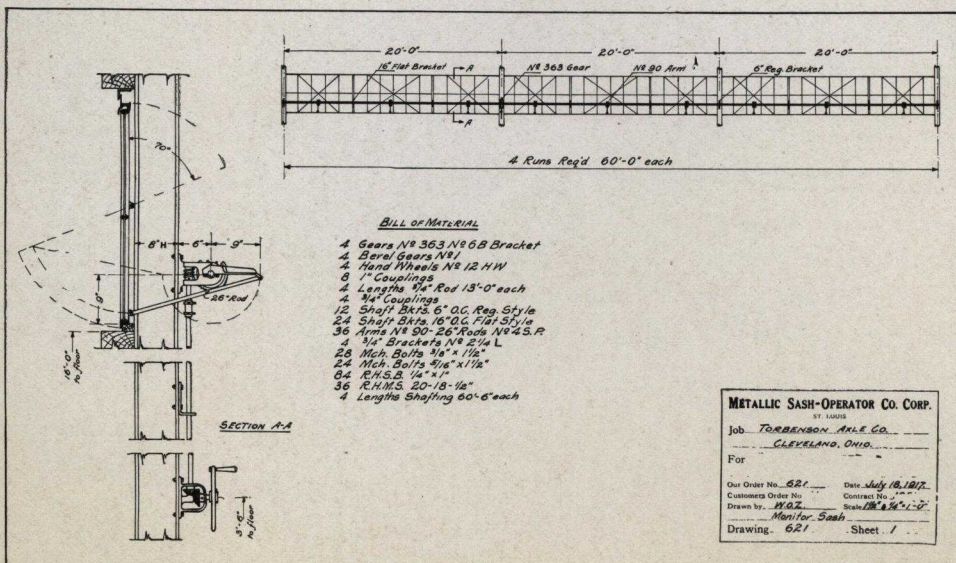 20'-0"
20'-0"
20'-0"
16" Flat Bracket
A
Nº 363 Gear
Nº 90 Arm
6" Reg. Bracket
A
4 Runs Req'd 60'-0" each
70°
8" H
6"
9"
9"
26" Rod
16'-0"
to floor
SECTION A-A
3'-6"
to floor
BILL OF MATERIAL
4 Gears Nº 363 Nº 6B Bracket
4 Bevel Gears Nº 1
4 Hand Wheels Nº 12 HW
8 1" Couplings
4 Lengths 3/4" Rod 13'-0" each
4 3/4" Couplings
12 Shaft Bkts. 6" O.C. Reg. Style
24 Shaft Bkts. 16" O.C. Flat Style
36 Arms Nº 90-26" Rods Nº 4 S.P.
4 3/4" Brackets Nº 2 1/4 L
28 Mch. Bolts 3/8" x 1 1/2"
24 Mch. Bolts 5/16" x 1 1/2"
84 R.H.S.B. 1/4" x 1"
36 R.H.M.S. 20-18-1/2"
4 Lengths Shafting 60'-6" each
METALLIC SASH-OPERATOR CO. CORP.
ST. LOUIS
Job TORBENSON AXLE CO.
CLEVELAND, OHIO.
For
Our Order No. 621 Date July 18, 1917.
Customers Order No Contract No
Drawn by W.O.Z. Scale
Monitor Sash
Drawing 621 Sheet 1